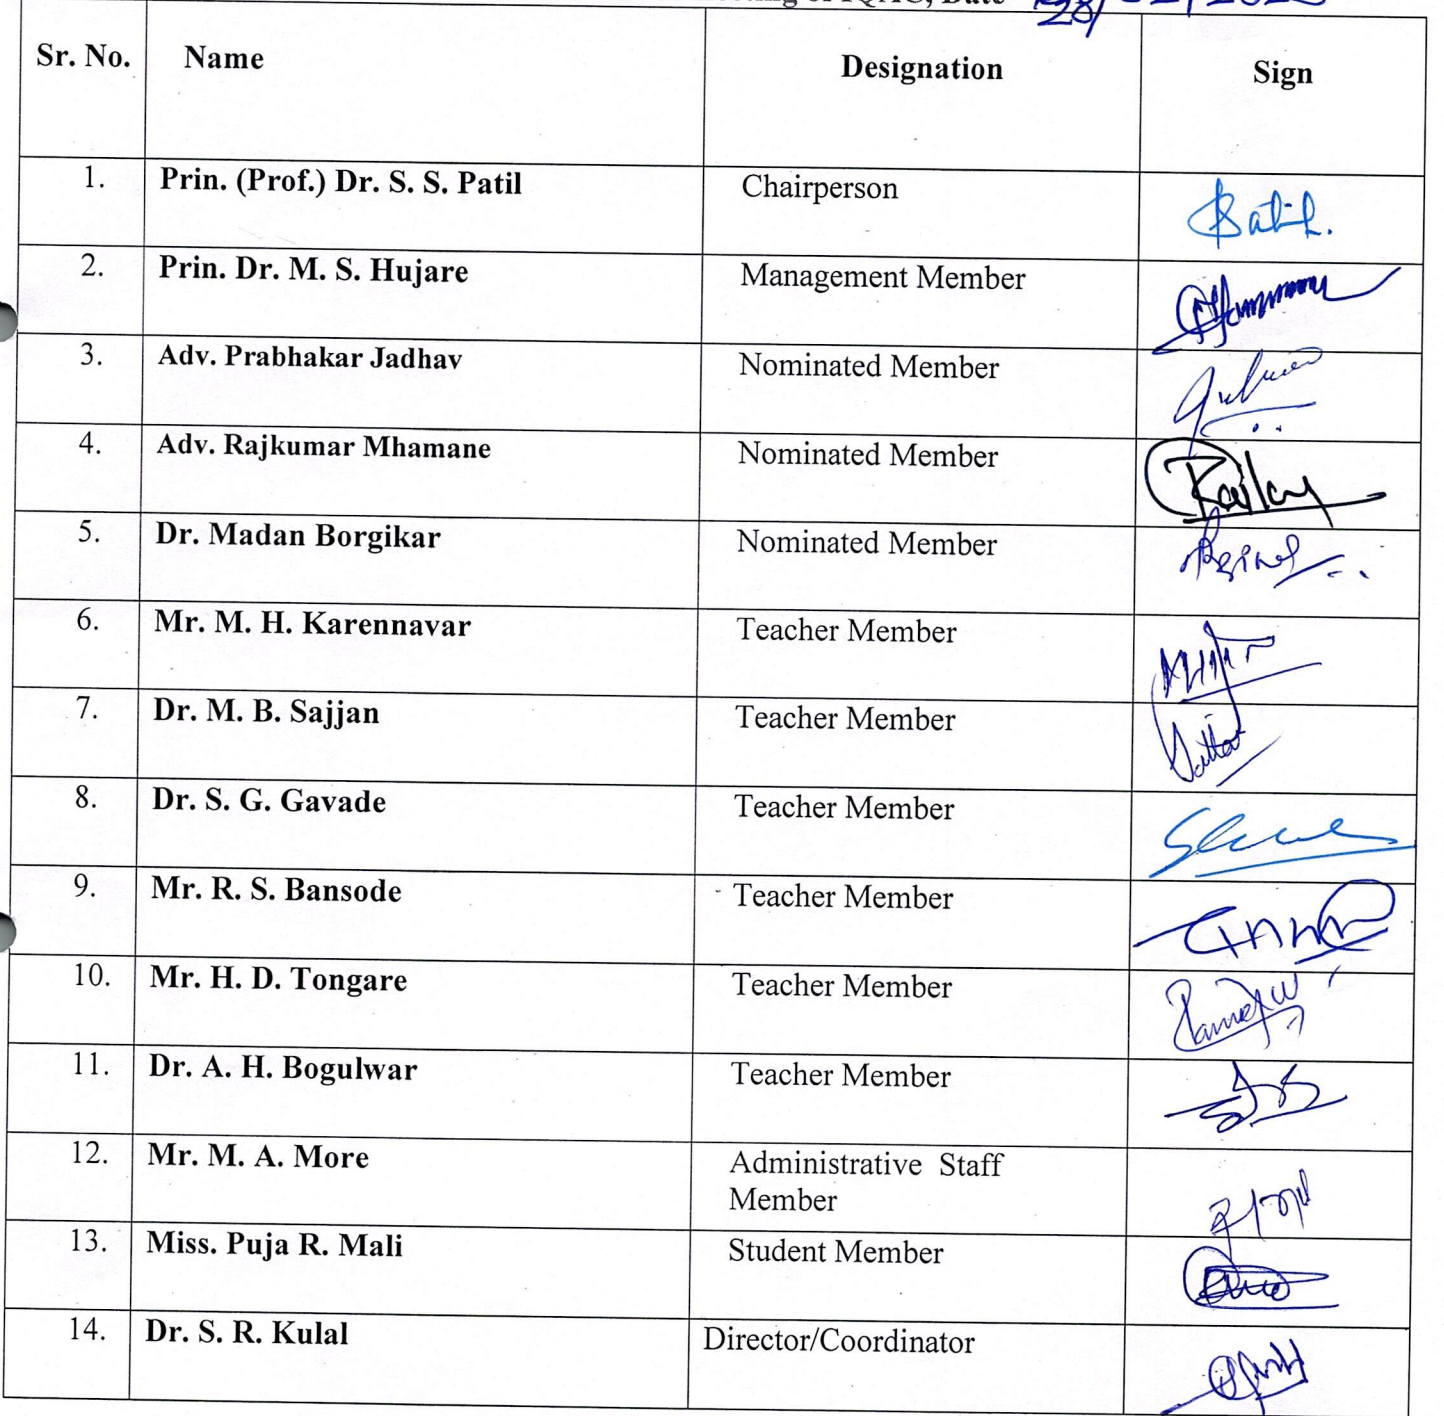 meeting of IQAC, Date 28/
Sr. No. Name Designation Sign
1. Prin. (Prof.) Dr. S. S. Patil Chairperson
2. Prin. Dr. M. S. Hujare Management Member
3. Adv. Prabhakar Jadhav Nominated Member
4. Adv. Rajkumar Mhamane Nominated Member
5. Dr. Madan Borgikar Nominated Member
6. Mr. M. H. Karennavar Teacher Member
7. Dr. M. B. Sajjan Teacher Member
8. Dr. S. G. Gavade Teacher Member
9. Mr. R. S. Bansode Teacher Member
10. Mr. H. D. Tongare Teacher Member
11. Dr. A. H. Bogulwar Teacher Member
12. Mr. M. A. More Administrative Staff
Member
13. Miss. Puja R. Mali Student Member
14. Dr. S. R. Kulal Director/Coordinator